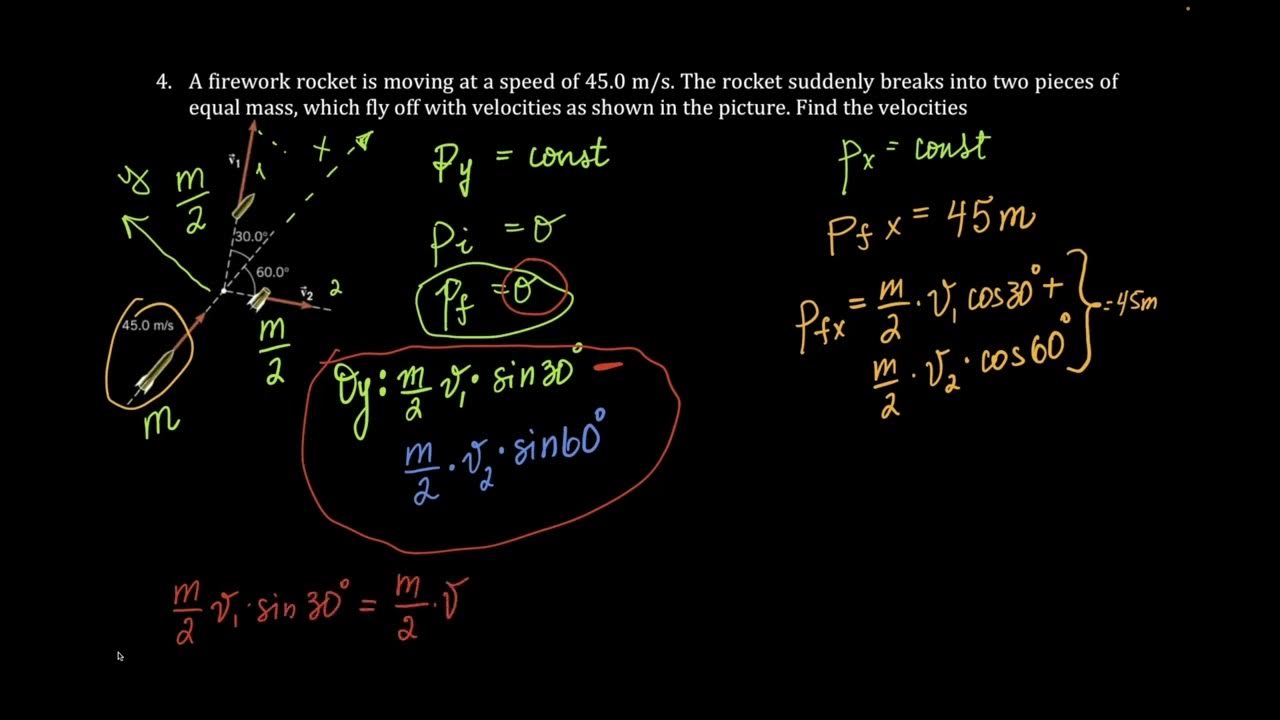 4. A firework rocket is moving at a speed of 45.0 m/s. The rocket suddenly breaks into two pieces of
equal mass, which fly off with velocities as shown in the picture. Find the velocities
v⃗₁ 1
x
y
m/2
30.0°
60.0°
v⃗₂ 2
45.0 m/s
m/2
m
Py = const
Pi = 0
Pf = 0
Oy: m/2 v₁ · sin30° −
m/2 · v₂ · sin60°
m/2 v₁ · sin 30° = m/2 · v
px = const
Pfx = 45m
Pfx = m/2 · v₁ cos30° +
m/2 · v₂ · cos60° } = 45m